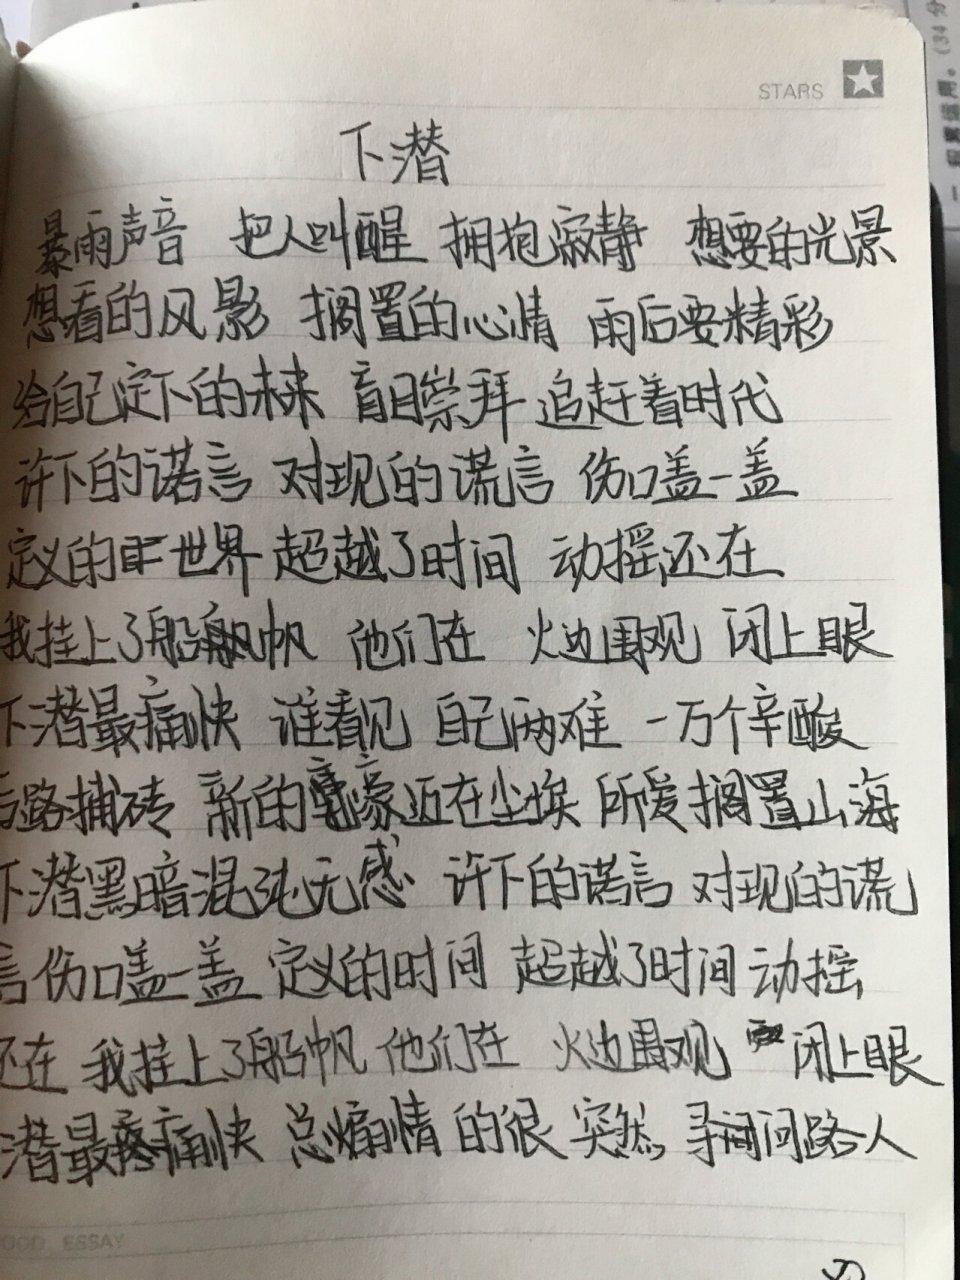 STARS
下潜
暴雨声音 把人叫醒 拥抱寂静 想要的光景
想看的风景 搁置的心情 雨后要精彩
给自己定下的未来 盲目崇拜 追赶着时代
许下的诺言 对现的谎言 伤口盖一盖
定义的世界 超越了时间 动摇还在
我挂上了船帆 他们在 火边围观 闭上眼
下潜最痛快 谁看见 自己两难 一万个辛酸
后路捕砖 新的 近在尘埃 所爱搁置山海
下潜黑暗混沌无感 许下的诺言 对现的谎
言伤口盖一盖 定义的时间 超越了时间 动摇
还在 我挂上了船帆 他们在 火边围观 闭上眼
潜最痛快 总煽情 的很 突然 寻问路人
OOD ESSAY